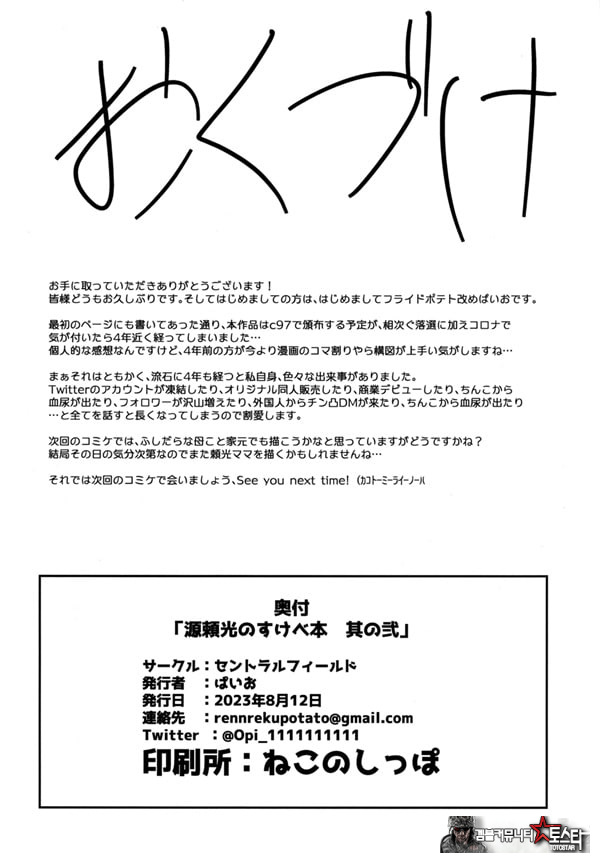 おくづけ
お手に取っていただきありがとうございます！
皆様どうもお久しぶりです。そしてはじめましての方は、はじめましてフライドポテト改めぱいおです。
最初のページにも書いてあった通り、本作品はc97で頒布する予定が、相次ぐ落選に加えコロナで
気が付いたら4年近く経ってしまいました…
個人的な感想なんですけど、4年前の方が今より漫画のコマ割りやら構図が上手い気がしますね…
まぁそれはともかく、流石に4年も経つと私自身、色々な出来事がありました。
Twitterのアカウントが凍結したり、オリジナル同人販売したり、商業デビューしたり、ちんこから
血尿が出たり、フォロワーが沢山増えたり、外国人からチン凸DMが来たり、ちんこから血尿が出たり
…と全てを話すと長くなってしまうので割愛します。
次回のコミケでは、ふしだらな母こと家元でも描こうかなと思っていますがどうですかね？
結局その日の気分次第なのでまた頼光ママを描くかもしれませんね…
それでは次回のコミケで会いましょう、See you next time! (ｶｺﾄｰﾐｰﾗｲｰﾉｰﾙ
奥付
「源頼光のすけべ本　其の弐」
サークル：セントラルフィールド
発行者　：ぱいお
発行日　：2023年8月12日
連絡先　：rennrekupotato@gmail.com
Twitter　：@Opi_1111111111
印刷所：ねこのしっぽ
검블커뮤니티★토스타
TOTOSTAR